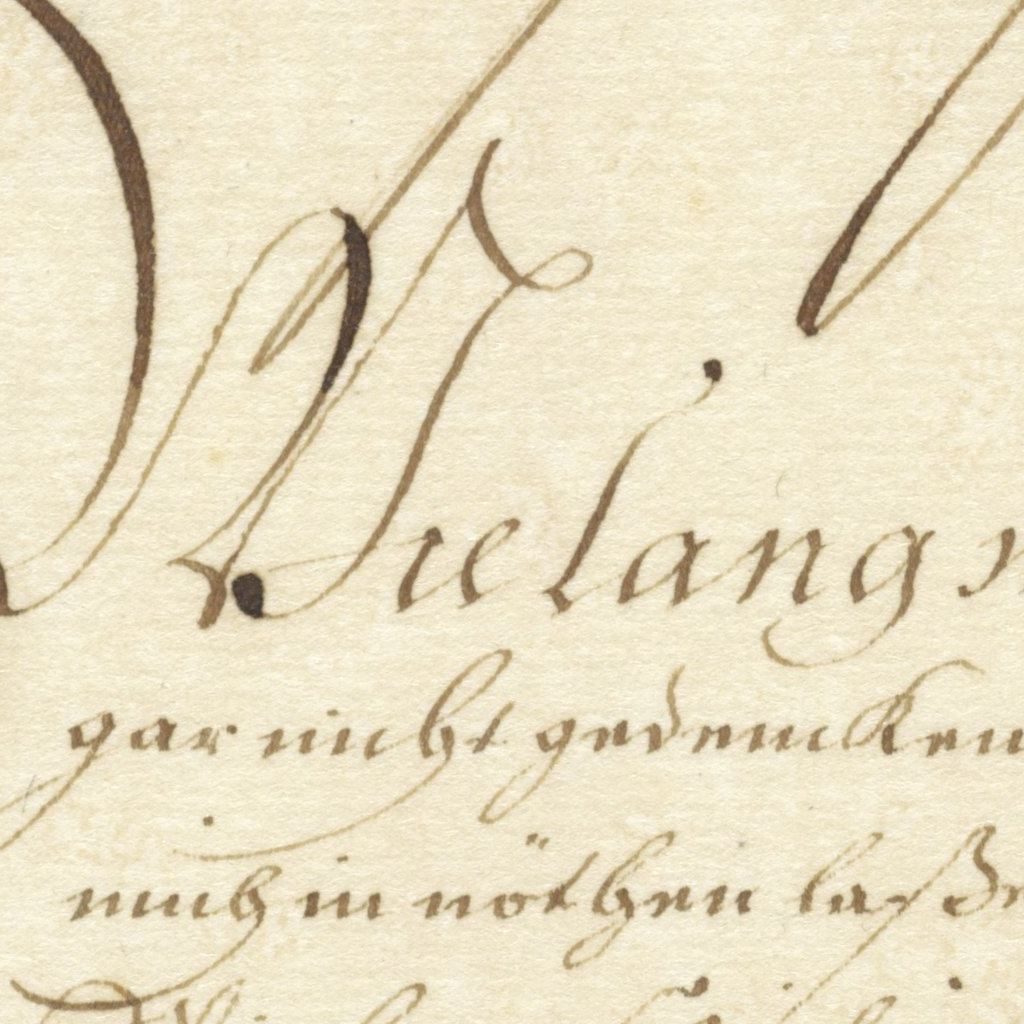 Wie lang
gar nicht gedencken
mich in nöthen laße